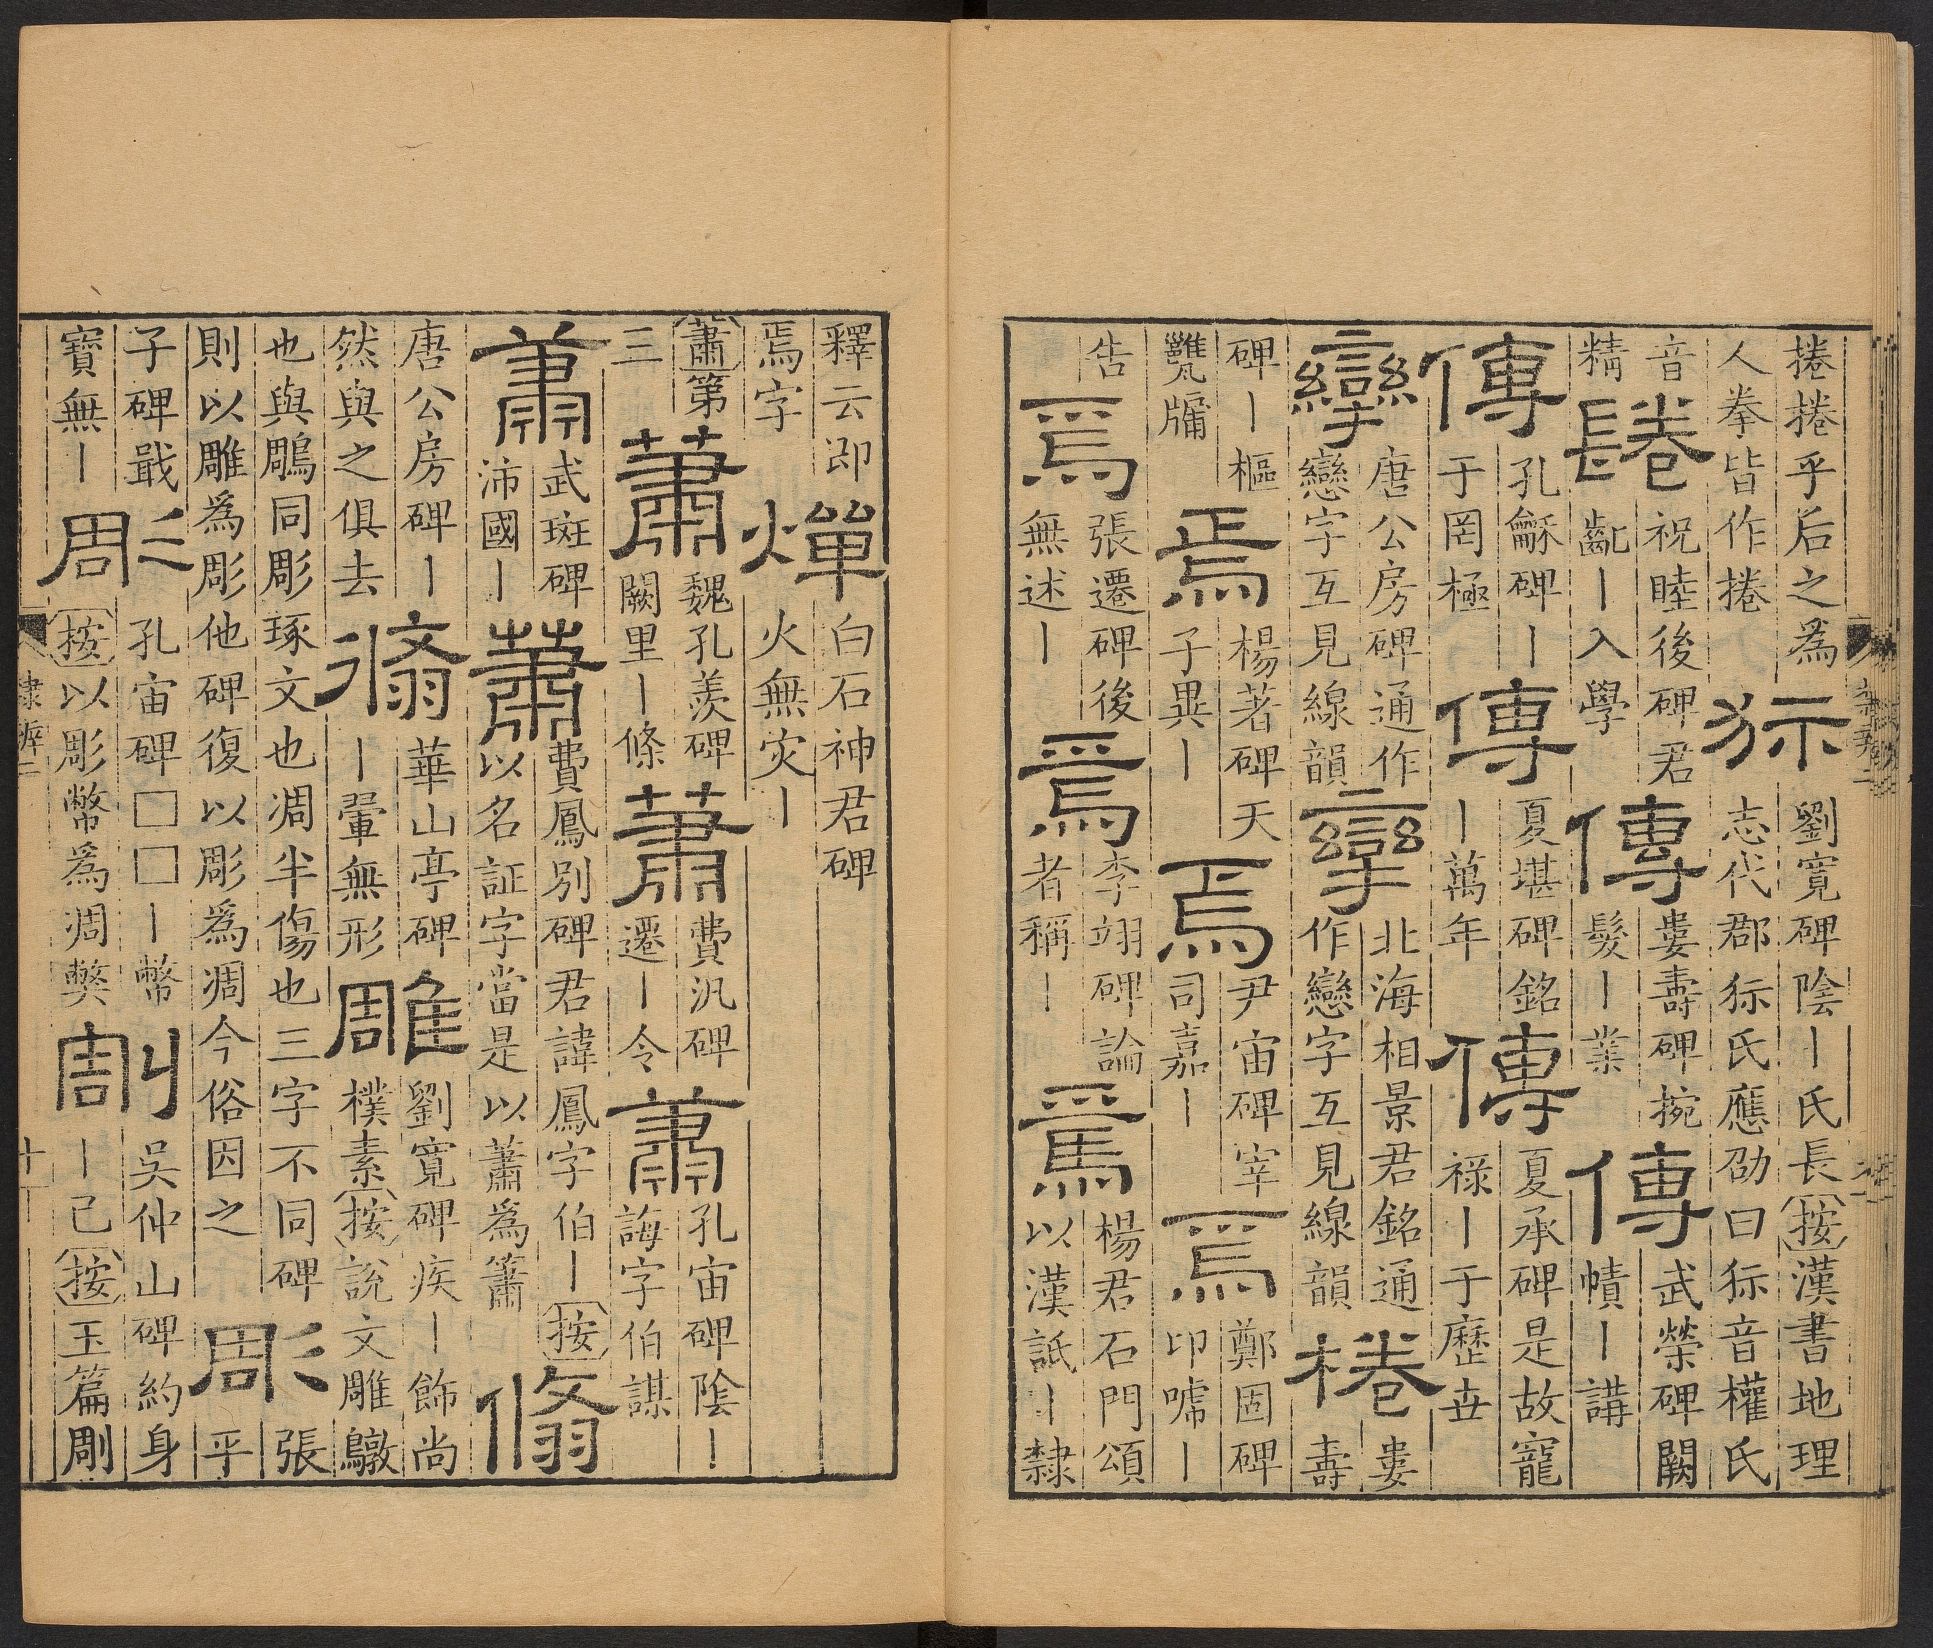 捲捲乎后之為
人拳皆作捲
狋
劉寬碑陰丨氏長按漢書地理
志代郡狋氏應劭曰狋音權氏
音
精
鬈
祝睦後碑君
齔丨入學
傳
婁壽碑捥
髮丨業
傳
武榮碑闕
幘丨講
傳
孔龢碑丨
于罔極
傳
夏堪碑銘
丨萬年
傳
夏承碑是故寵
祿丨于歷世
攣
唐公房碑通作
戀字互見線韻
攣
北海相景君銘通
作戀字互見線韻
棬
婁
壽
碑丨樞
甕牖
焉
楊著碑天
子異丨
焉
尹宙碑宰
司嘉丨
焉
鄭固碑
印噓丨
告
焉
張遷碑後
無述丨
焉
李翊碑論
者稱丨
焉
楊君石門頌
以漢詆丨隸
釋云即
焉字
燀
白石神君碑
火無灾丨
蕭第
三
蕭
魏孔羨碑
闕里丨條
蕭
費汎碑
遷丨令
蕭
孔宙碑陰丨
誨字伯謀
蕭
武斑碑
沛國丨
蕭
費鳳別碑君諱鳳字伯丨按
以名証字當是以蕭為簫
翛
唐公房碑丨
然與之俱去
翛
華山亭碑
丨翬無形
雕
劉寬碑疾丨飾尚
樸素按說文雕鷻
也與鵰同彫琢文也凋半傷也三字不同碑
則以雕為彫他碑復以彫為凋今俗因之
彫
張
平
子碑戢
寶無丨
彫
孔宙碑□□丨幣
按以彫幣為凋弊
㓮
吳仲山碑約身
丨己按玉篇㓮
隸辨二
十一